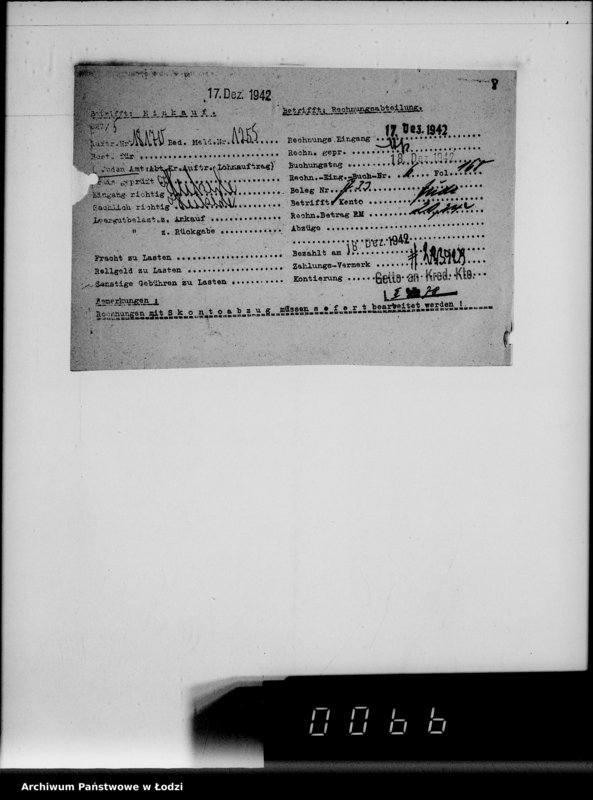 17. Dez. 1942
8
Betrifft: Einkauf.
Betrifft: Rechnungsabteilung.
Auftr.Nr. 18170 Bed. Meld.Nr. 1255
Rechnungs Eingang 17. Dez. 1942
Best. für
Rechn. gepr.
Juden Amt. Abt. Kr. Auftr. Lohnauftrag)
Buchungstag 18. Dez. 1942
geprüft
Rechn.-Eing.-Buch-Nr. 6 Fol. 165
Eingang richtig
Beleg Nr.
Sachlich richtig
Betrifft Konto
Leergutbelast. z. Ankauf
Rechn.Betrag RM
" z. Rückgabe
Abzüge
Fracht zu Lasten
Bezahlt am 18. Dez. 1942
Rollgeld zu Lasten
Zahlungs-Vermerk
Sonstige Gebühren zu Lasten
Kontierung Getto an Kred. Kto.
Bemerkungen:
Rechnungen mit Skontoabzug müssen sofort bearbeitet werden !
0066
Archiwum Państwowe w Łodzi